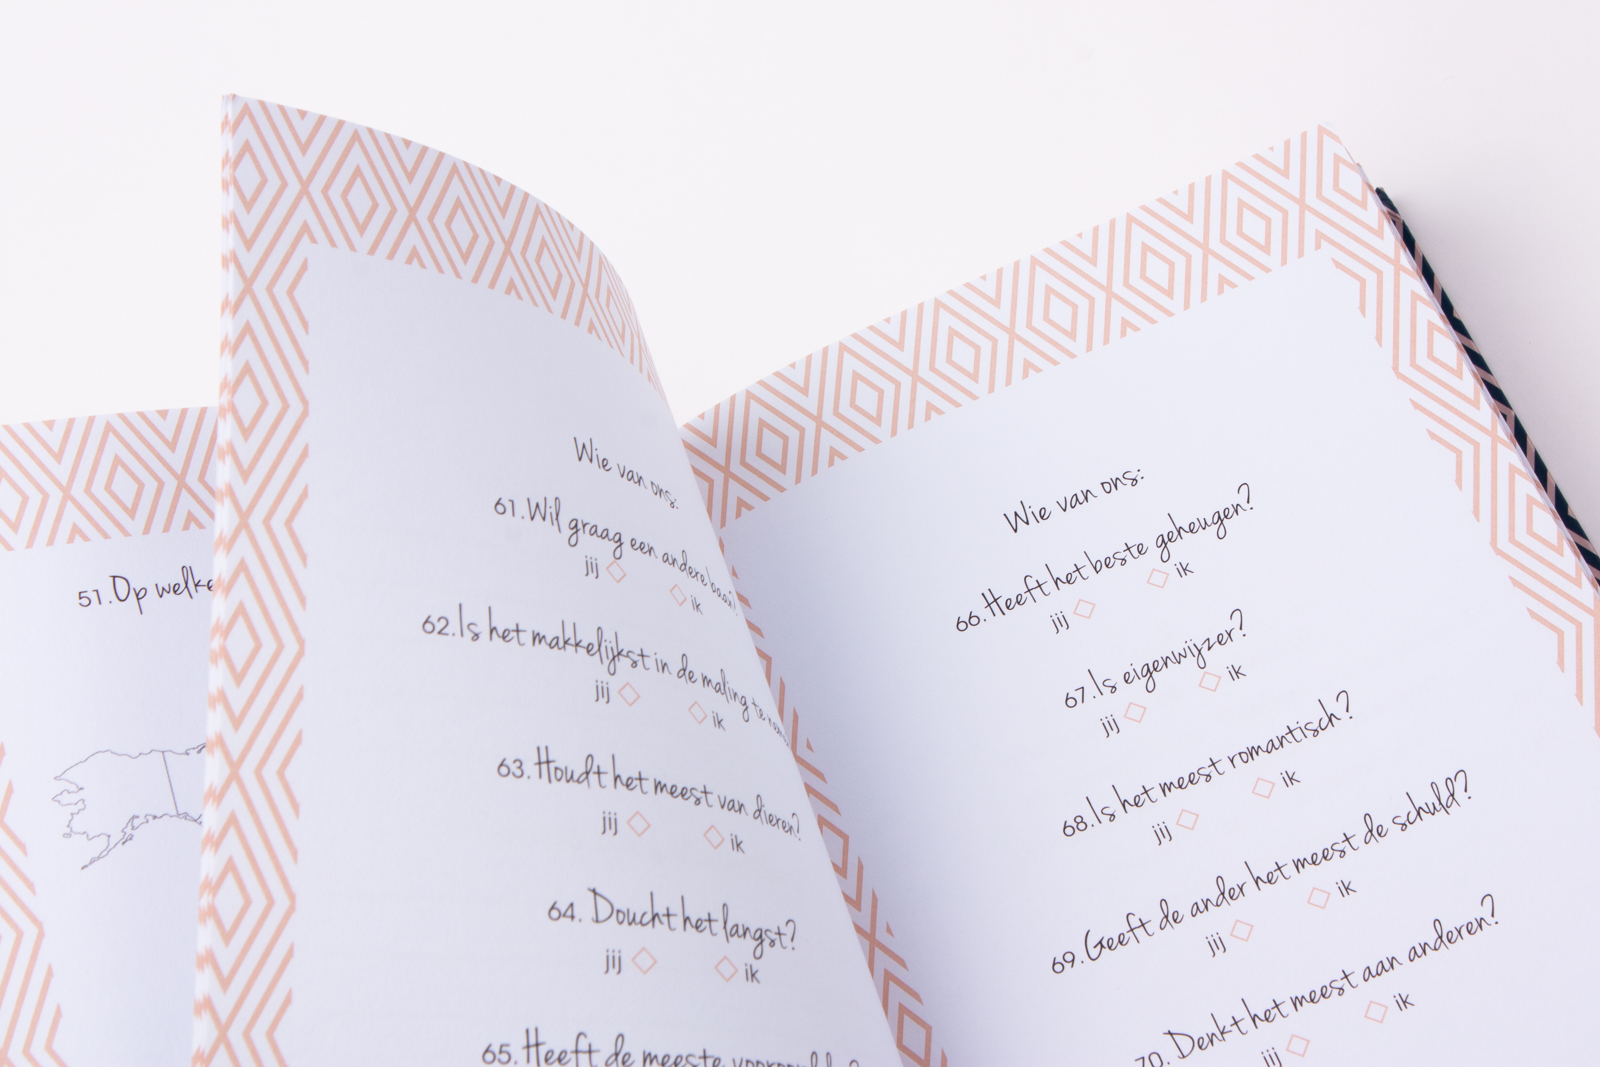 51.Op welke
Wie van ons:
61.Wil graag een andere baan?
jij ik
62.Is het makkelijkst in de maling te
jij ik
63.Houdt het meest van dieren?
jij ik
64. Doucht het langst?
jij ik
65.Heeft de meeste
Wie van ons:
66.Heeft het beste geheugen?
jij ik
67.Is eigenwijzer?
jij ik
68.Is het meest romantisch?
jij ik
69.Geeft de ander het meest de schuld?
jij ik
70.Denkt het meest aan anderen?
jij ik